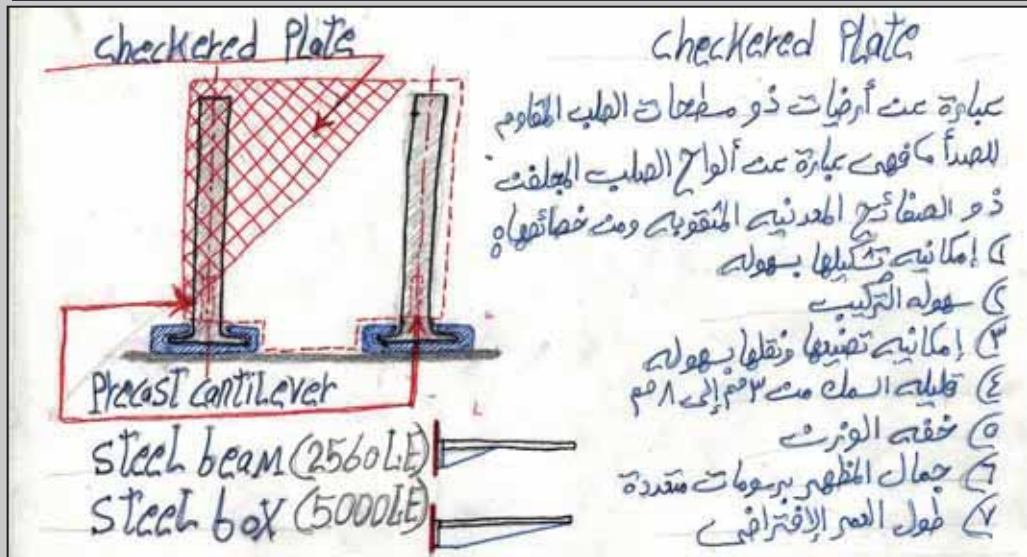 checkered Plate
Precast cantilever
steel beam (2560LE)
steel box (5000LE)
checkered Plate
عبارة عن أرضيات ذو مسطحات الصلب المقاوم
للصدأ فهى عبارة عن ألواح الصلب المجلفن
ذو الصفائح المعدنيه المثقوبه ومن خصائصها
١) إمكانيه تشكيلها بسهوله
٢) سهوله التركيب
٣) إمكانيه تصنيعها ونقلها بسهوله
٤) قليله السمك من ٣مم إلى ٨مم
٥) خفه الوزن
٦) جمال المظهر برسومات متعددة
٧) طول العمر الإفتراضى